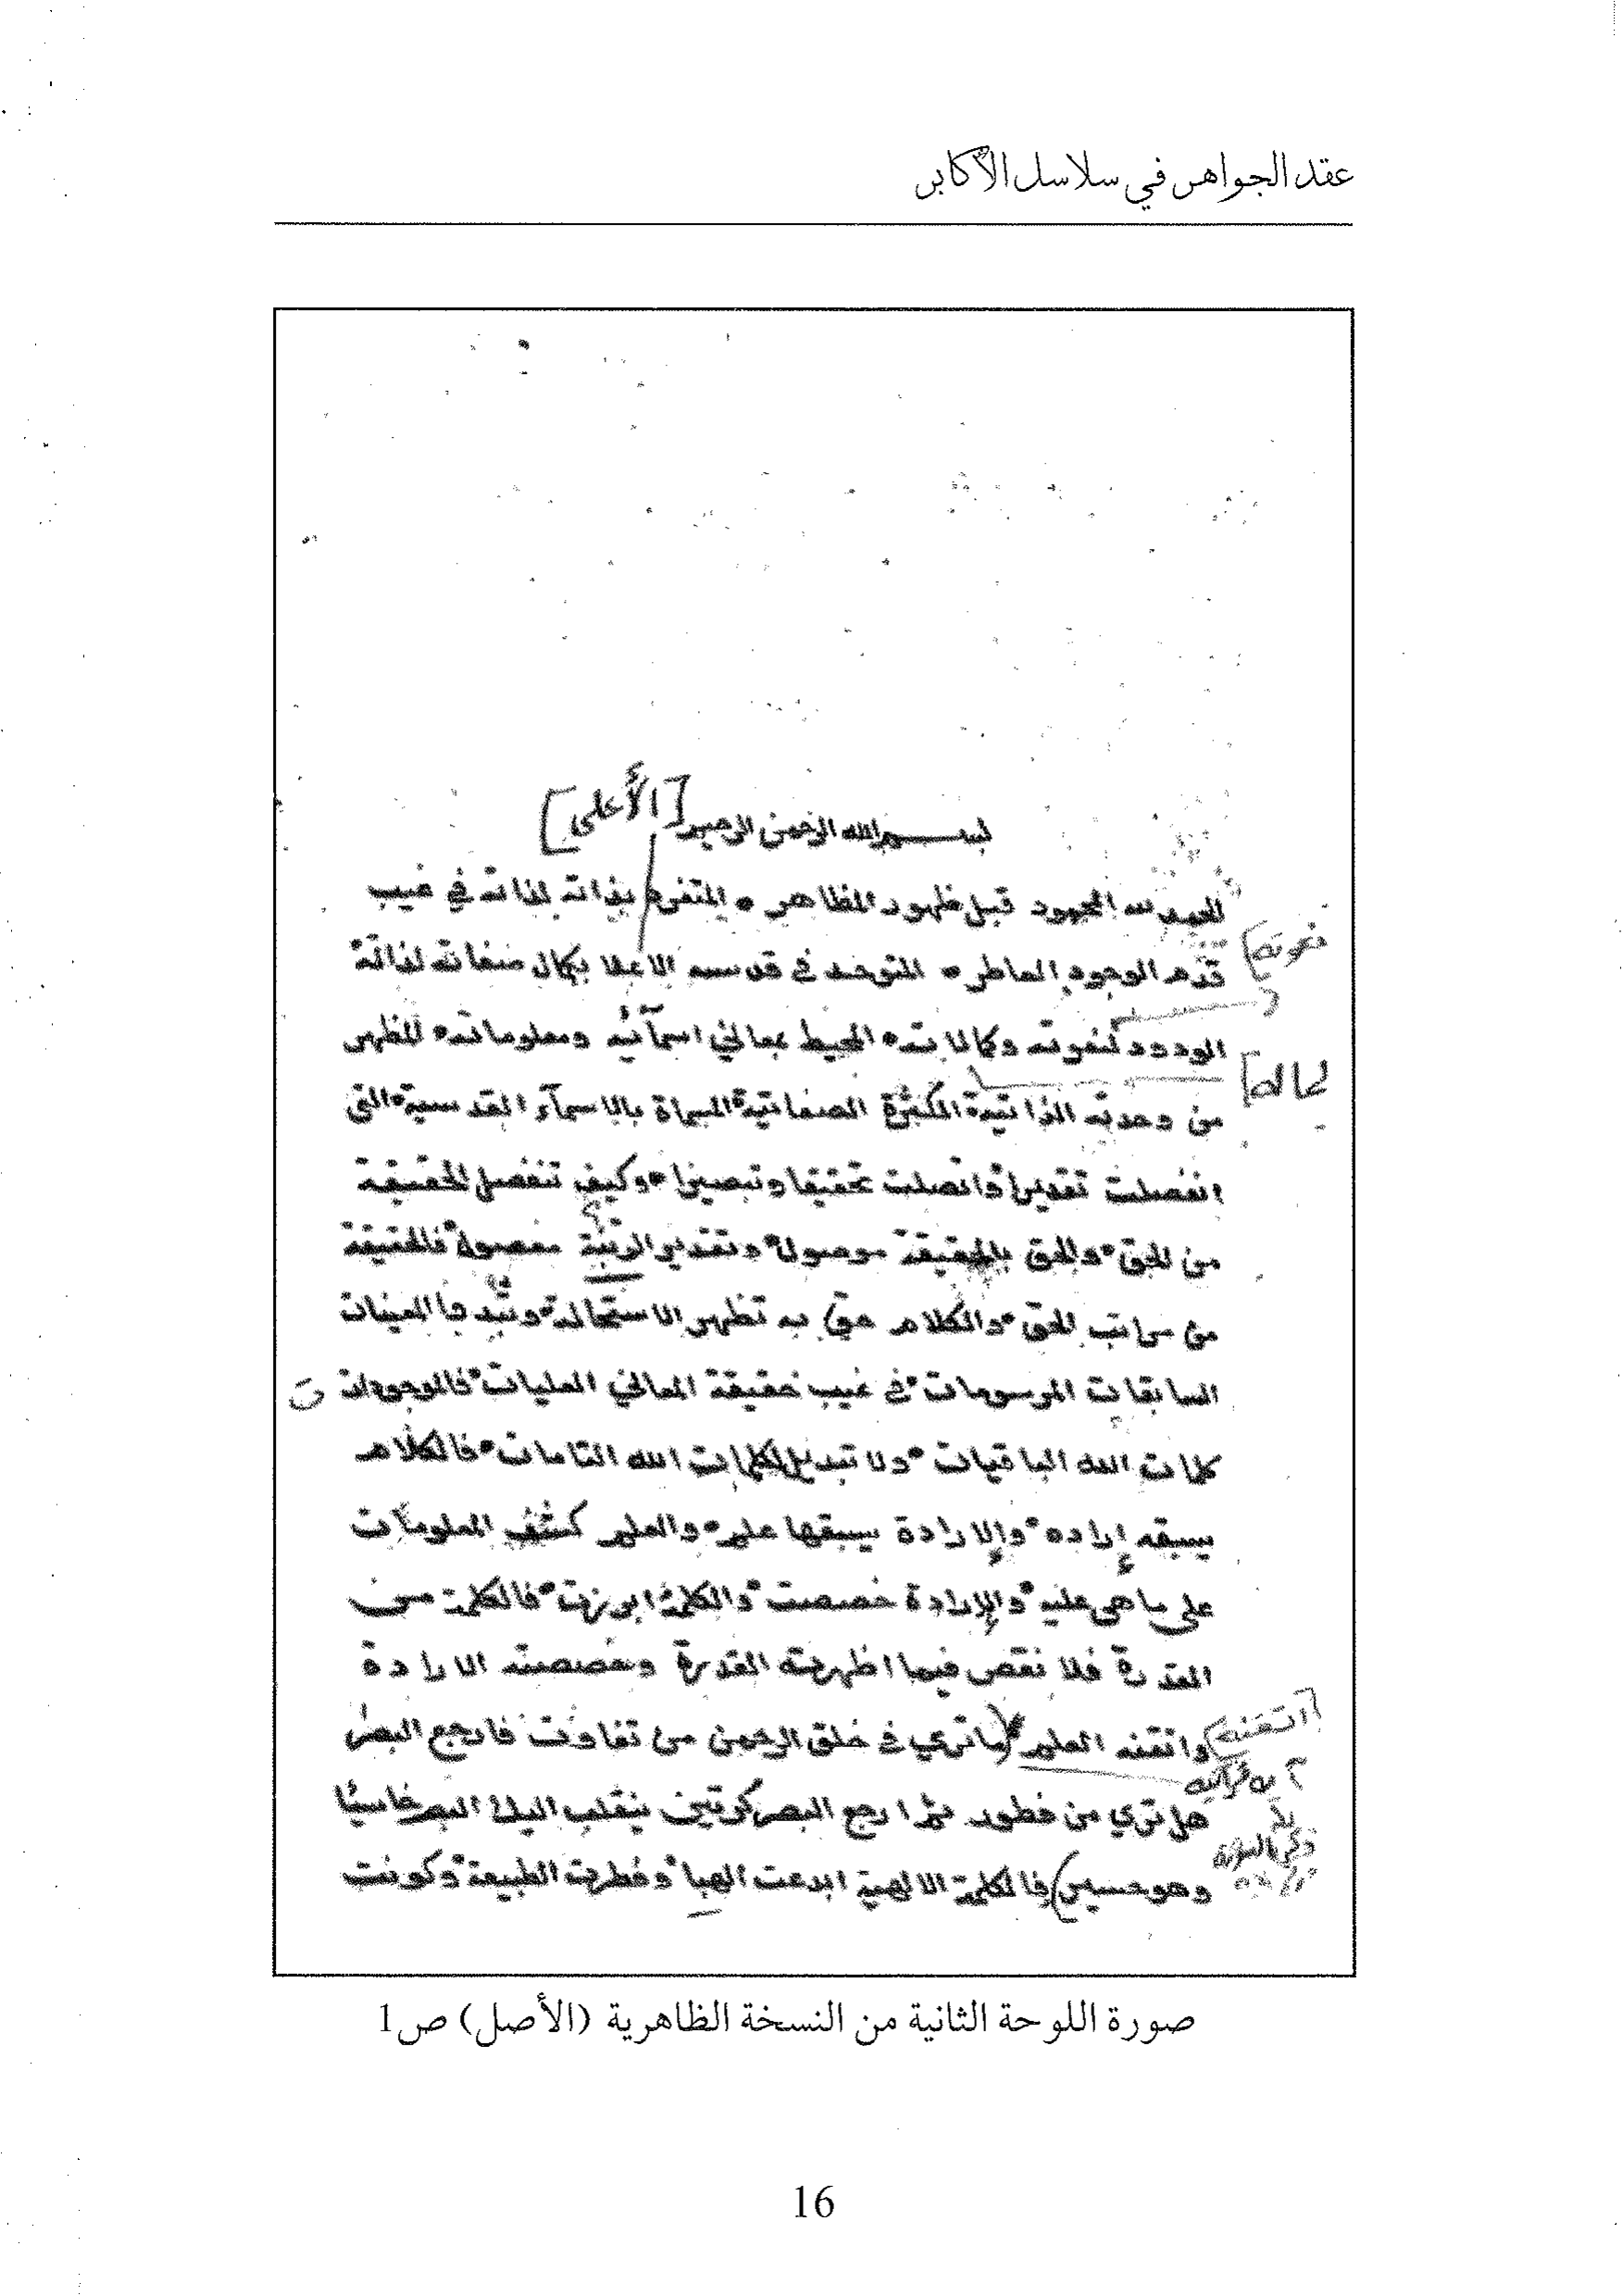 عقد الجواهر في سلاسل الأكابر
بسم الله الرحمن الرحيم [الأعلى]
الحمد لله المحمود قبل ظهور المظاهر المتفرد بذاته لذاته في غيب
الوجود العاطر المتوحد في قدسه الاعلا بكمال صفاته لذاته
الودود لنعوته وكمالاته المحيط بمعاني اسمآئه ومعلوماته المظهر
من وحدته الذاتية الكثرة الصفاتية المسماة بالاسمآء القدسية التي
انفصلت تقديرا واتصلت تحقيقا وتبصيرا وكيف تنفصل الحقيقة
من الحق والحق بالحقيقة موصول وتقدير الرتبة مفصول فالحقيقة
من مراتب الحق والكلام حق به تظهر الاستحالة وتبدو العينات
السابقات المرسومات في غيب حقيقة المعاني العليات فالموجودات
كلمات الله الباقيات ولا تبديل لكلمات الله التامات فالكلام
يسبقه إراده والإرادة يسبقها علم والعلم كشف المعلومات
على ما هي عليه والإرادة خصصت والكلمة ابرزت فالكلمة من
القدرة فلا نقص فيما اظهرته القدرة وخصصته الارادة
واتقنه العلم (ما تري في خلق الرحمن من تفاوت فارجع البصر
هل تري من فطور ثم ارجع البصر كرتين ينقلب اليك البصر خاسئا
وهو حسير) فالكلمة الالهية ابدعت الهبا وفطرت الطبيعة وكونت
نعوته
[اتقنه]
آيه قرآنيه
صورة اللوحة الثانية من النسخة الظاهرية (الأصل) ص1
16